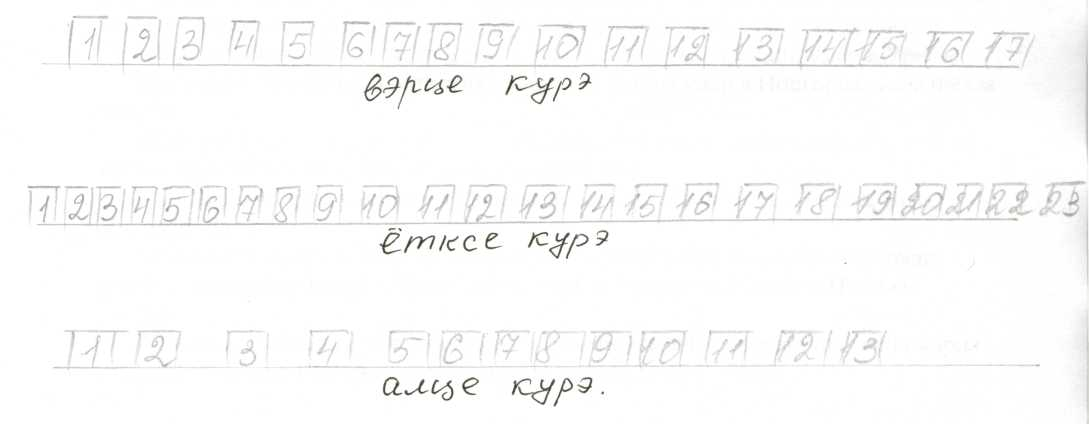 1 2 3 4 5 6 7 8 9 10 11 12 13 14 15 16 17
вэрце курэ
1 2 3 4 5 6 7 8 9 10 11 12 13 14 15 16 17 18 19 20 21 22 23
ётксе курэ
1 2 3 4 5 6 7 8 9 10 11 12 13
алце курэ.